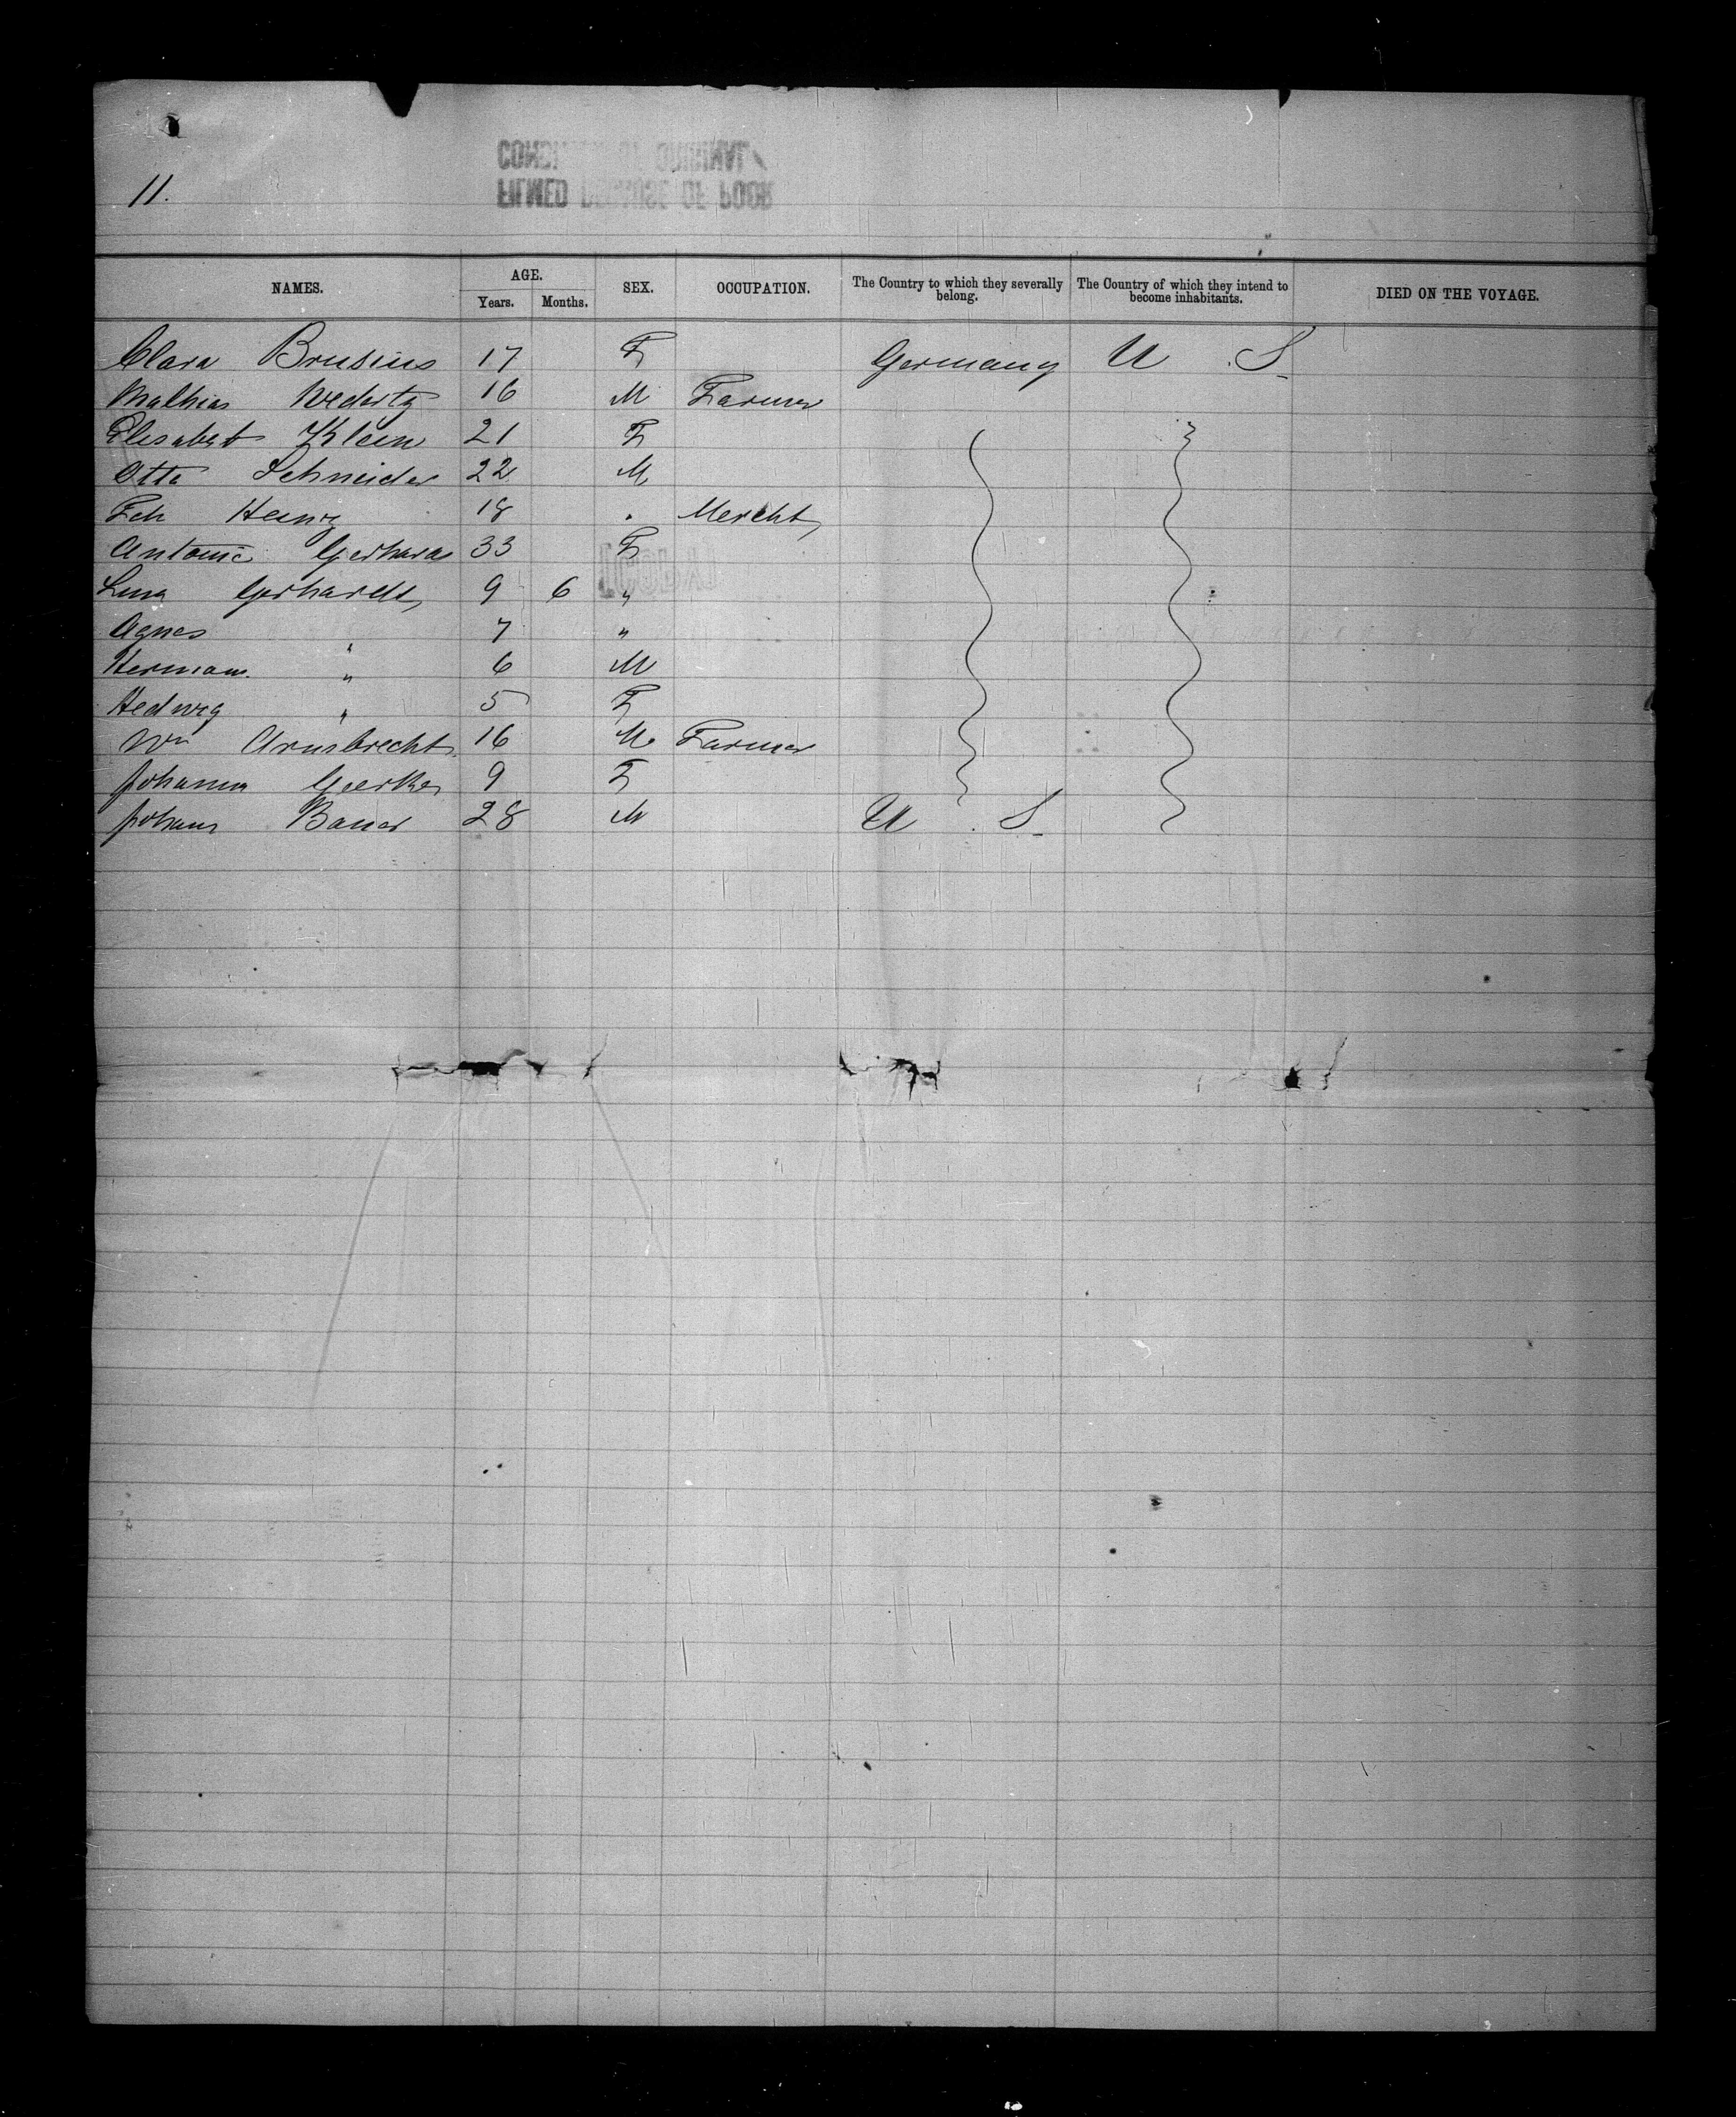 11.
NAMES. AGE. Years. Months. SEX. OCCUPATION. The Country to which they severally belong. The Country of which they intend to become inhabitants. DIED ON THE VOYAGE.
Clara Brusius 17 F Germany U.S.
Mathias 16 M Farmer
Elisabet Klein 21 F
Otto Schneider 22 M
18 " Mercht
Antonie Gerhard 33 F
Lina Gerhardt 9 6 "
Agnes " 7 "
Herman " 6 M
Hedwig " 5 F
Wm Arnsbrecht 16 M Farmer
Johanna Goerke 9 F
Johann Bauer 28 M U.S.